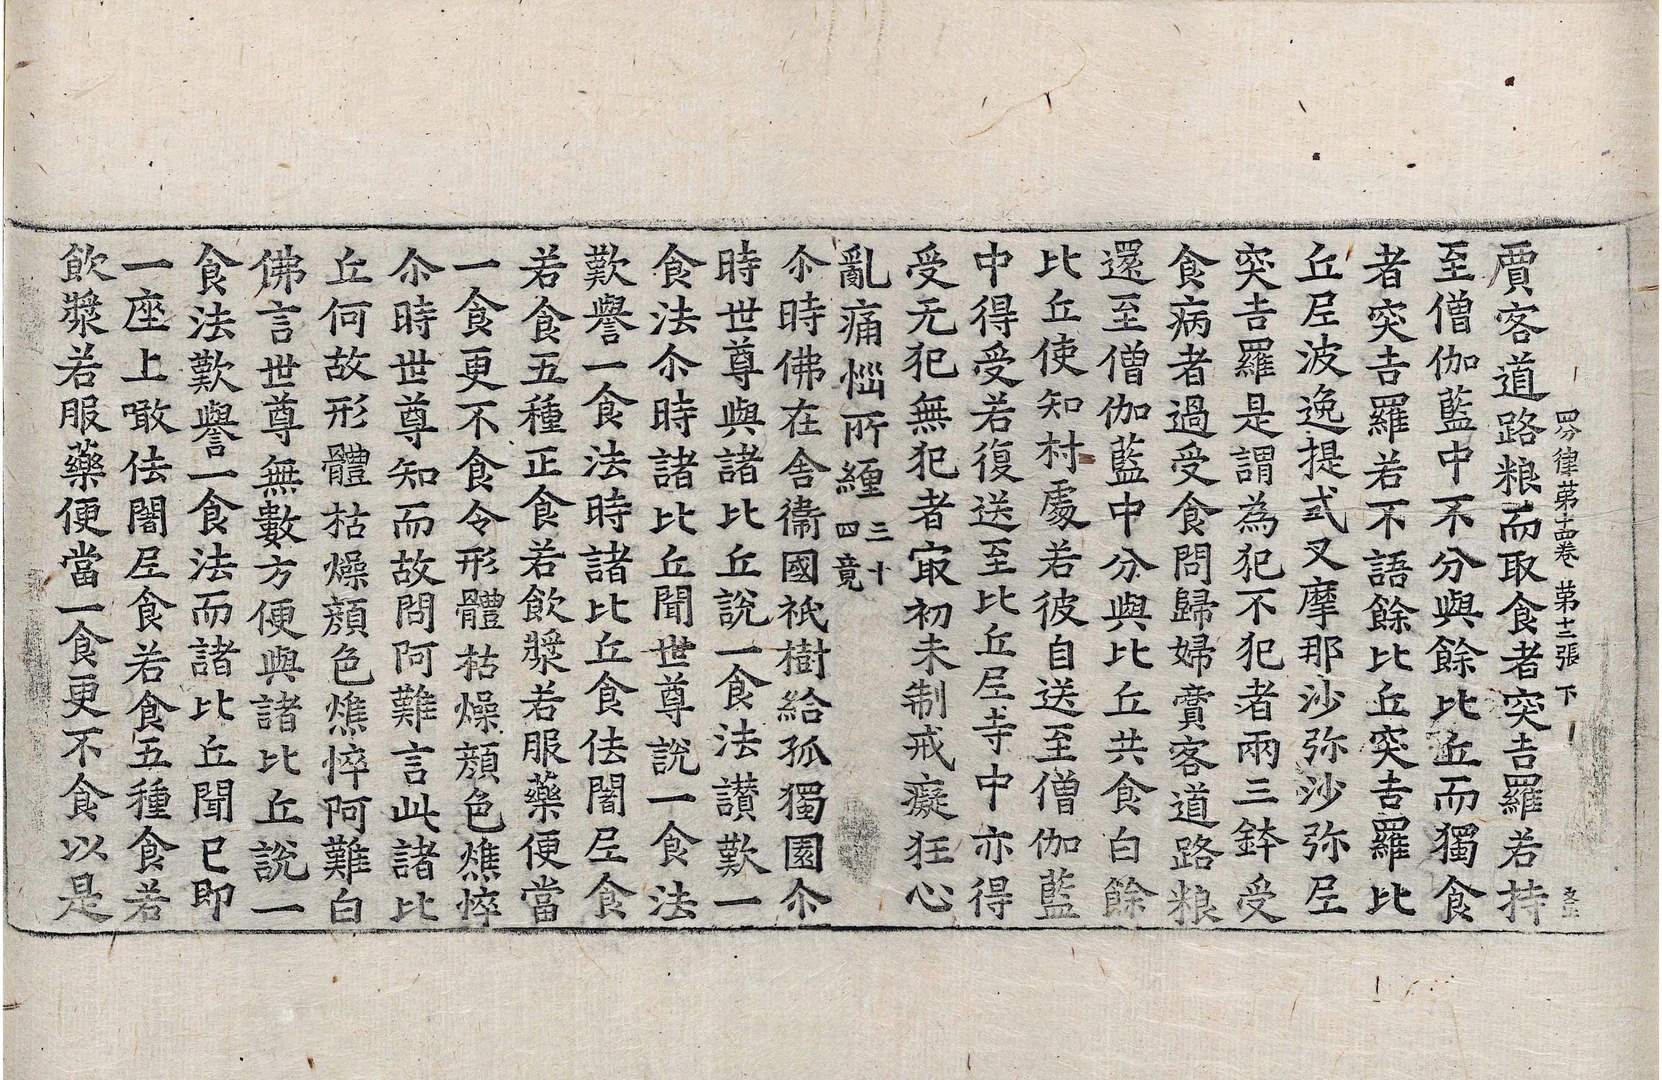 四分律第十四卷 第十二張 下
賈客道路粮而取食者突吉羅若持
至僧伽藍中不分與餘比丘而獨食
者突吉羅若不語餘比丘突吉羅比
丘尼波逸提式叉摩那沙弥沙弥尼
突吉羅是謂為犯不犯者兩三鉢受
食病者過受食問歸婦賣客道路粮
還至僧伽藍中分與比丘共食白餘
比丘使知村處若彼自送至僧伽藍
中得受若復送至比丘尼寺中亦得
受无犯無犯者㝡初未制戒癡狂心
亂痛惱所纏三十四竟
尒時佛在舍衞國祇樹給孤獨園尒
時世尊與諸比丘說一食法讃歎一
食法尒時諸比丘聞世尊說一食法
歎譽一食法時諸比丘食佉闍尼食
若食五種正食若飲漿若服藥便當
一食更不食令形體枯燥顔色燋悴
尒時世尊知而故問阿難言此諸比
丘何故形體枯燥顔色燋悴阿難白
佛言世尊無數方便與諸比丘說一
食法歎譽一食法而諸比丘聞已即
一座上噉佉闍尼食若食五種食若
飲漿若服藥便當一食更不食以是